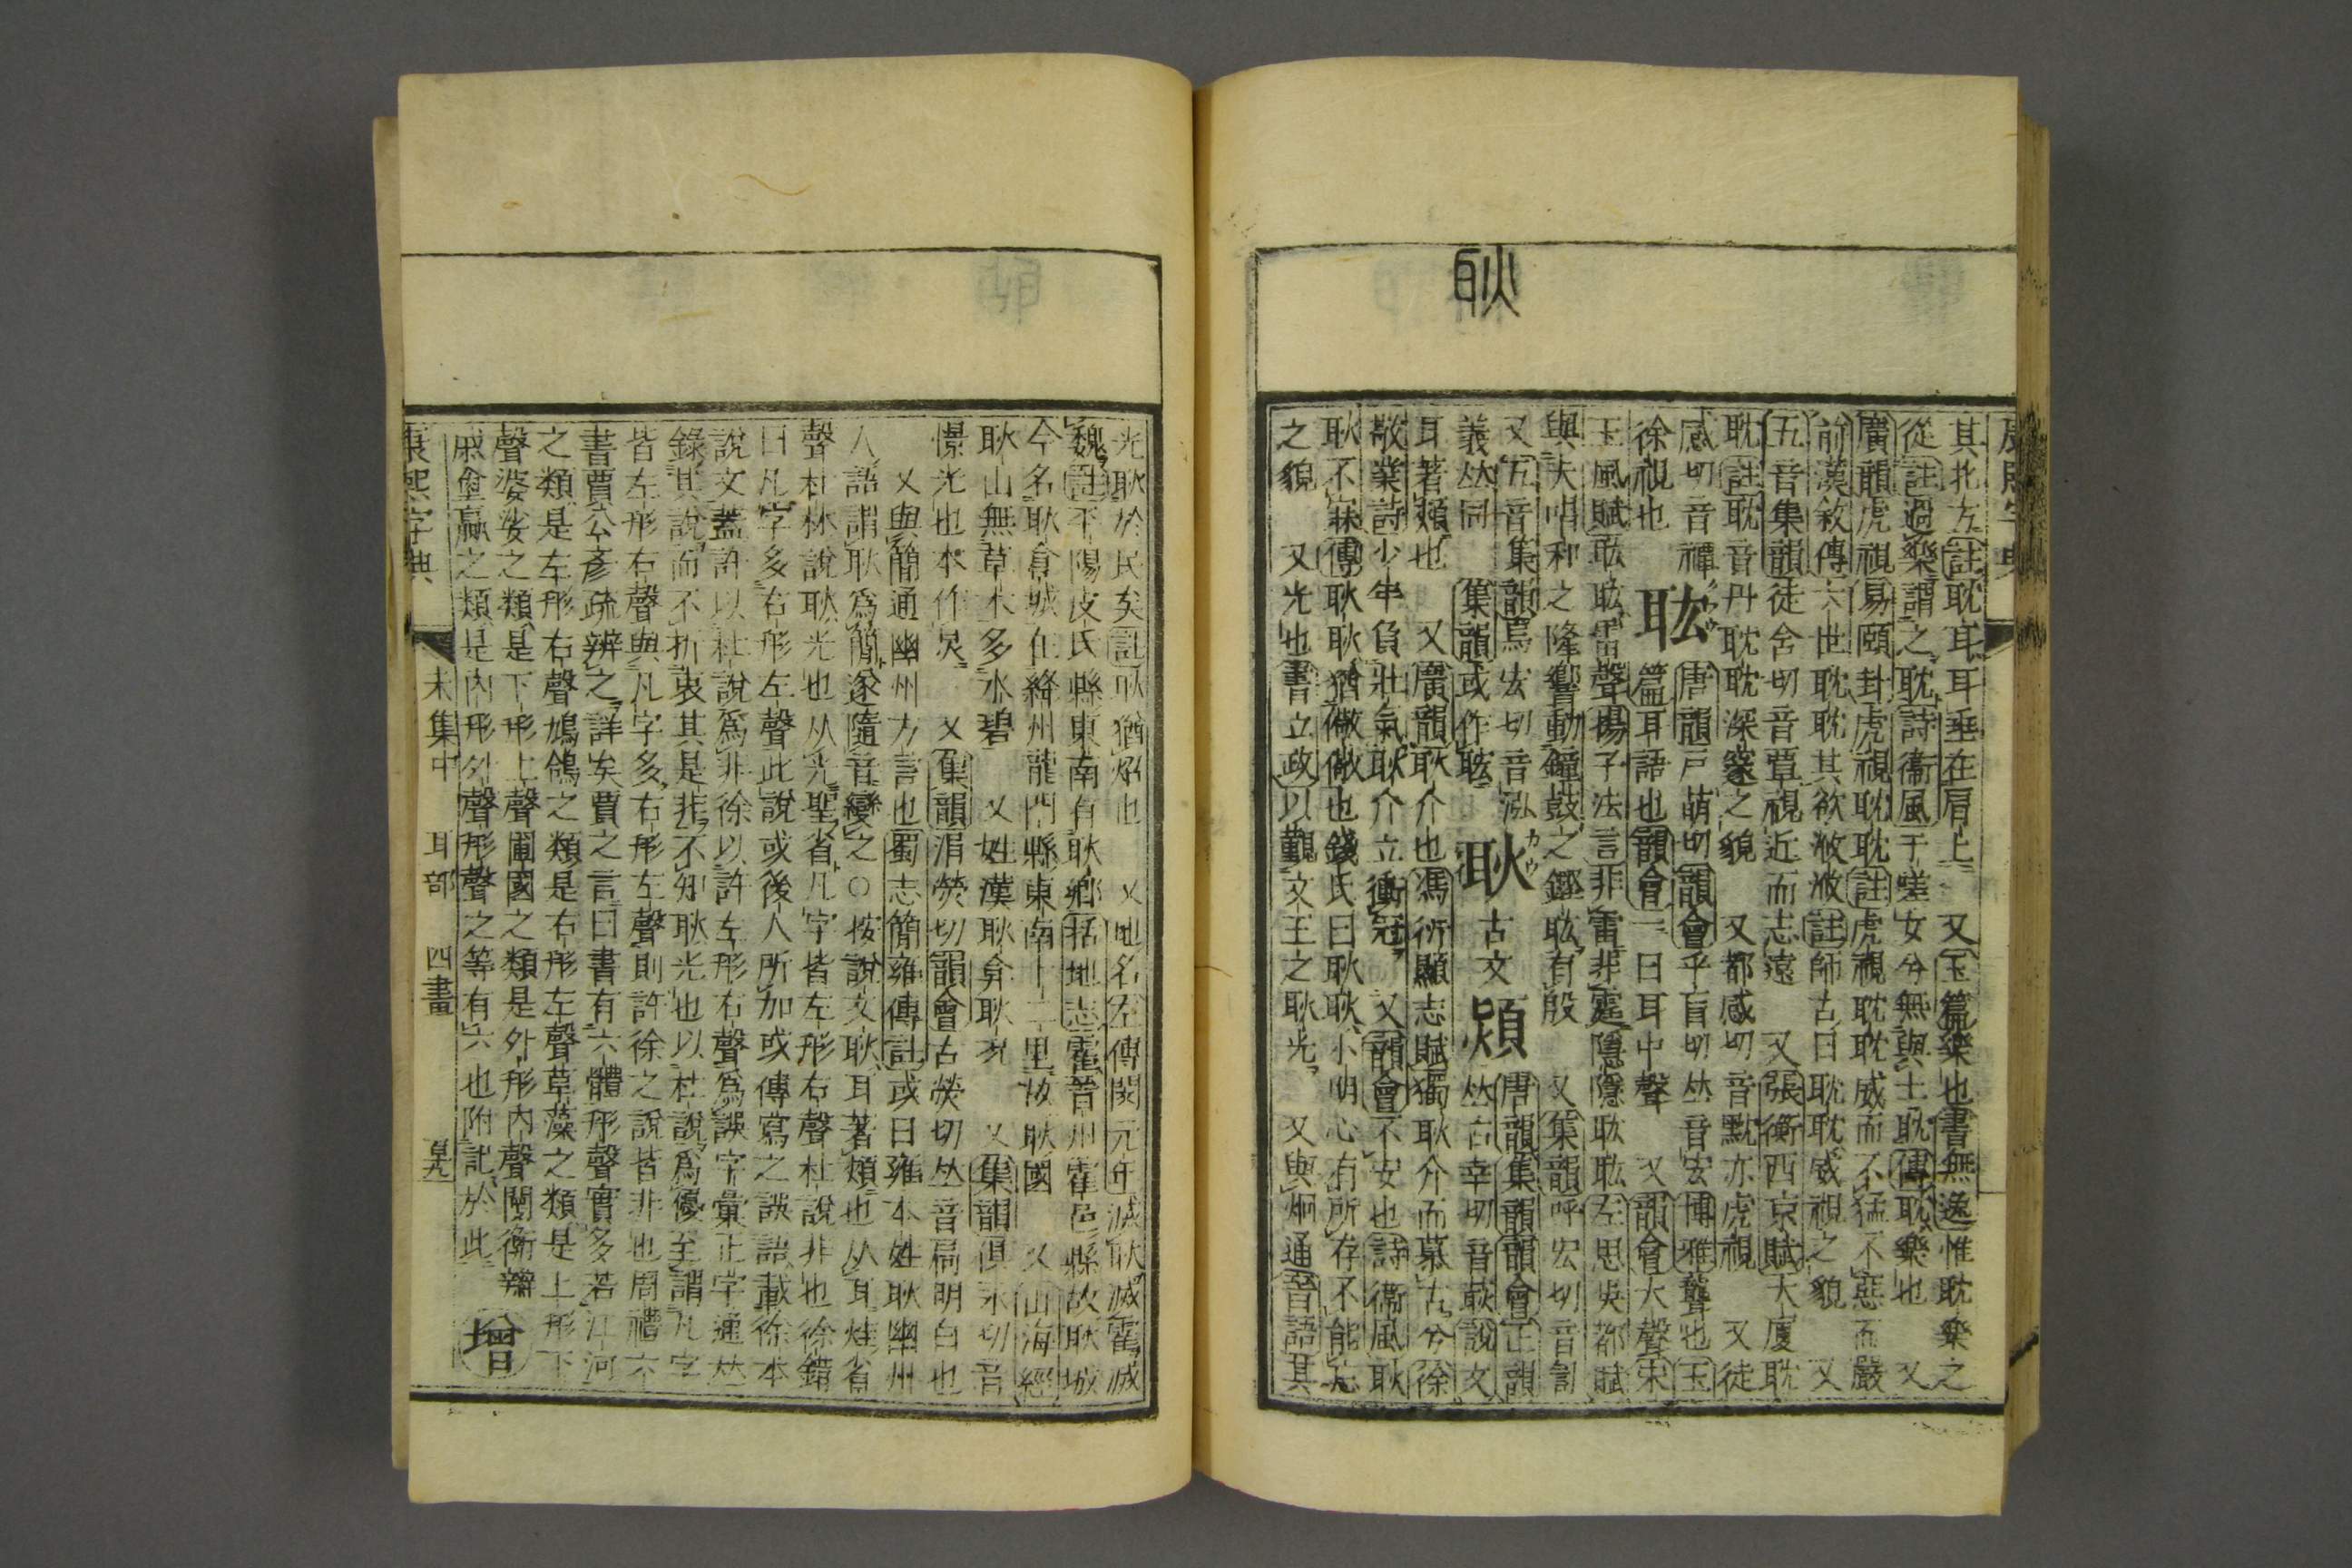 耿
其北方註耽耳耳垂在肩上　又玉篇樂也書無逸惟耽樂之
從註過樂謂之耽詩衞風于嗟女兮無與士耽傳耽樂也　又
廣韻虎視易頤卦虎視耽耽註虎視耽耽威而不猛不惡而嚴
前漢敘傳六世耽耽其欲浟浟註師古曰耽耽威視之貌　又
五音集韻徒含切音覃視近而志遠　又張衡西京賦大廈耽
耽註耽音丹耽耽深邃之貌　又都感切音黕亦虎視　又徒
感切音禫　耾　唐韻戸萌切韻會乎盲切𠀤音宏博雅聾也玉
徐視也　篇耳語也韻會一曰耳中聲　又韻會大聲宋
玉風賦耾耾雷聲揚子法言非雷非霆隱隱耾耾左思吳都賦
與夫唱和之隆響動鐘鼓之鏗耾有殷　又集韻呼宏切音訇
又五音集韻烏宏切音泓　耿　古文　熲　唐韻集韻韻會正韻
義𠀤同　集韻或作𦕠　𠀤古幸切音𣤛說文
耳著頰也　又廣韻耿介也馮衍顯志賦獨耿介而慕古兮徐
敬業詩少年負壯氣耿介立衝冠　又韻會不安也詩衞風耿
耿不寐傳耿耿猶儆儆也錢氏曰耿耿小明心有所存不能忘
之貌　又光也書立政以觀文王之耿光　又與炯通晉語其
光耿於民矣註耿猶炤也　又地名左傳閔元年滅耿滅霍滅
魏註平陽皮氏縣東南有耿鄉括地志霍晉州霍邑縣故耿城
今名耿倉城在絳州龍門縣東南十二里故耿國　又山海經
耿山無草木多水碧　又姓漢耿弇耿況　又集韻俱永切音
憬光也本作炅　又集韻涓熒切韻會古熒切𠀤音扃明白也
又與簡通幽州方言也蜀志簡雍傳註或曰雍本姓耿幽州
人語謂耿爲簡遂隨音變之○按說文耿耳著頰也从耳烓省
聲杜林說耿光也从光聖省凡字皆左形右聲杜說非也徐錯
曰凡字多右形左聲此說或後人所加或傳寫之誤諸載徐本
說文蓋許以杜說爲非徐以許左形右聲爲誤字彙正字通𠀤
錄其說而不折衷其是非不知耿光也以杜說爲優至謂凡字
皆左形右聲與凡字多右形左聲則許徐之說皆非也周禮六
書賈公彥疏辨之詳矣賈之言曰書有六體形聲實多若江河
之類是左形右聲鳩鴿之類是右形左聲草藻之類是上形下
聲婆娑之類是下形上聲圃國之類是外形內聲闤衡辯
戚奩羸之類是內形外聲形聲之等有六也附記於此　增
康熙字典　未集中　耳部　四畫